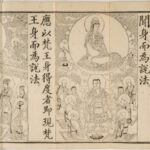 聞身而為說法
應以梵王身得度者即現梵
王身而為說法